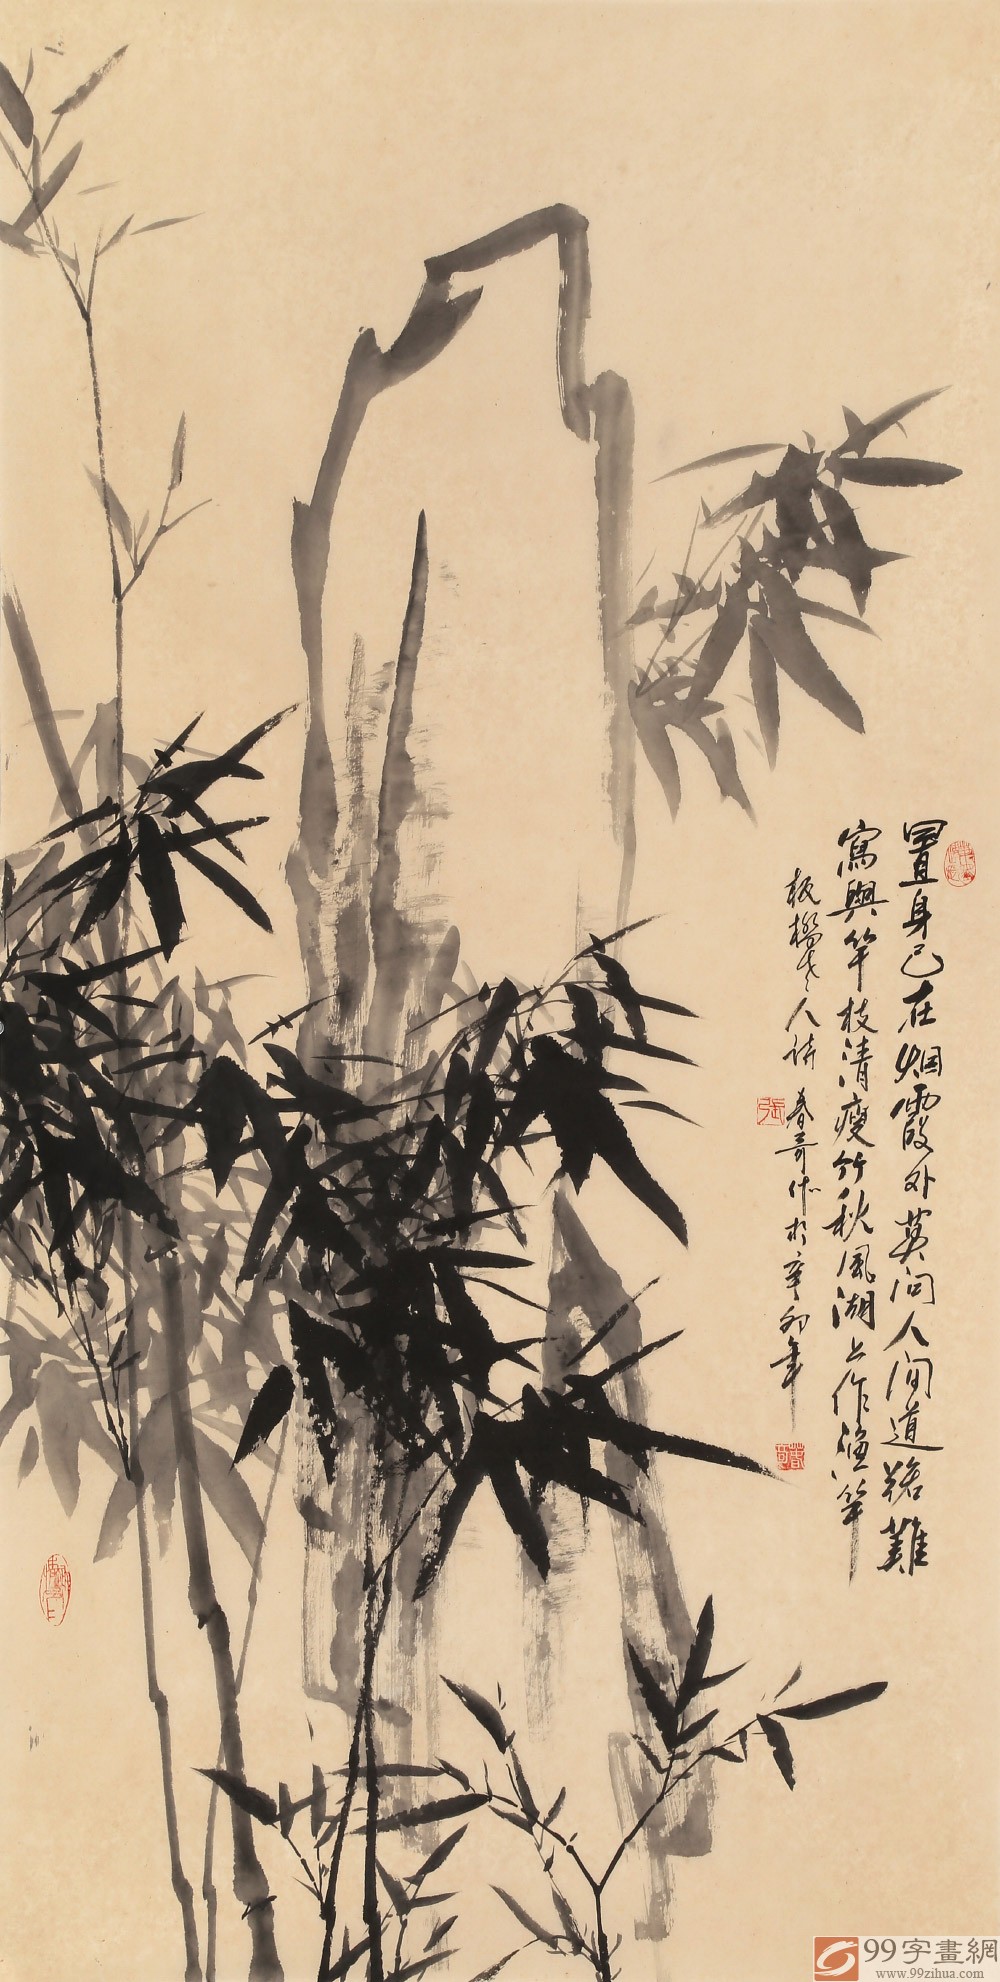 置身已在烟霞外莫问人间道路難
寫與竿枝清瘦竹秋風湖上作漁竿
板橋老人詩 春哥作於辛卯年
張
春哥
99字畫網
www.99zihua.com